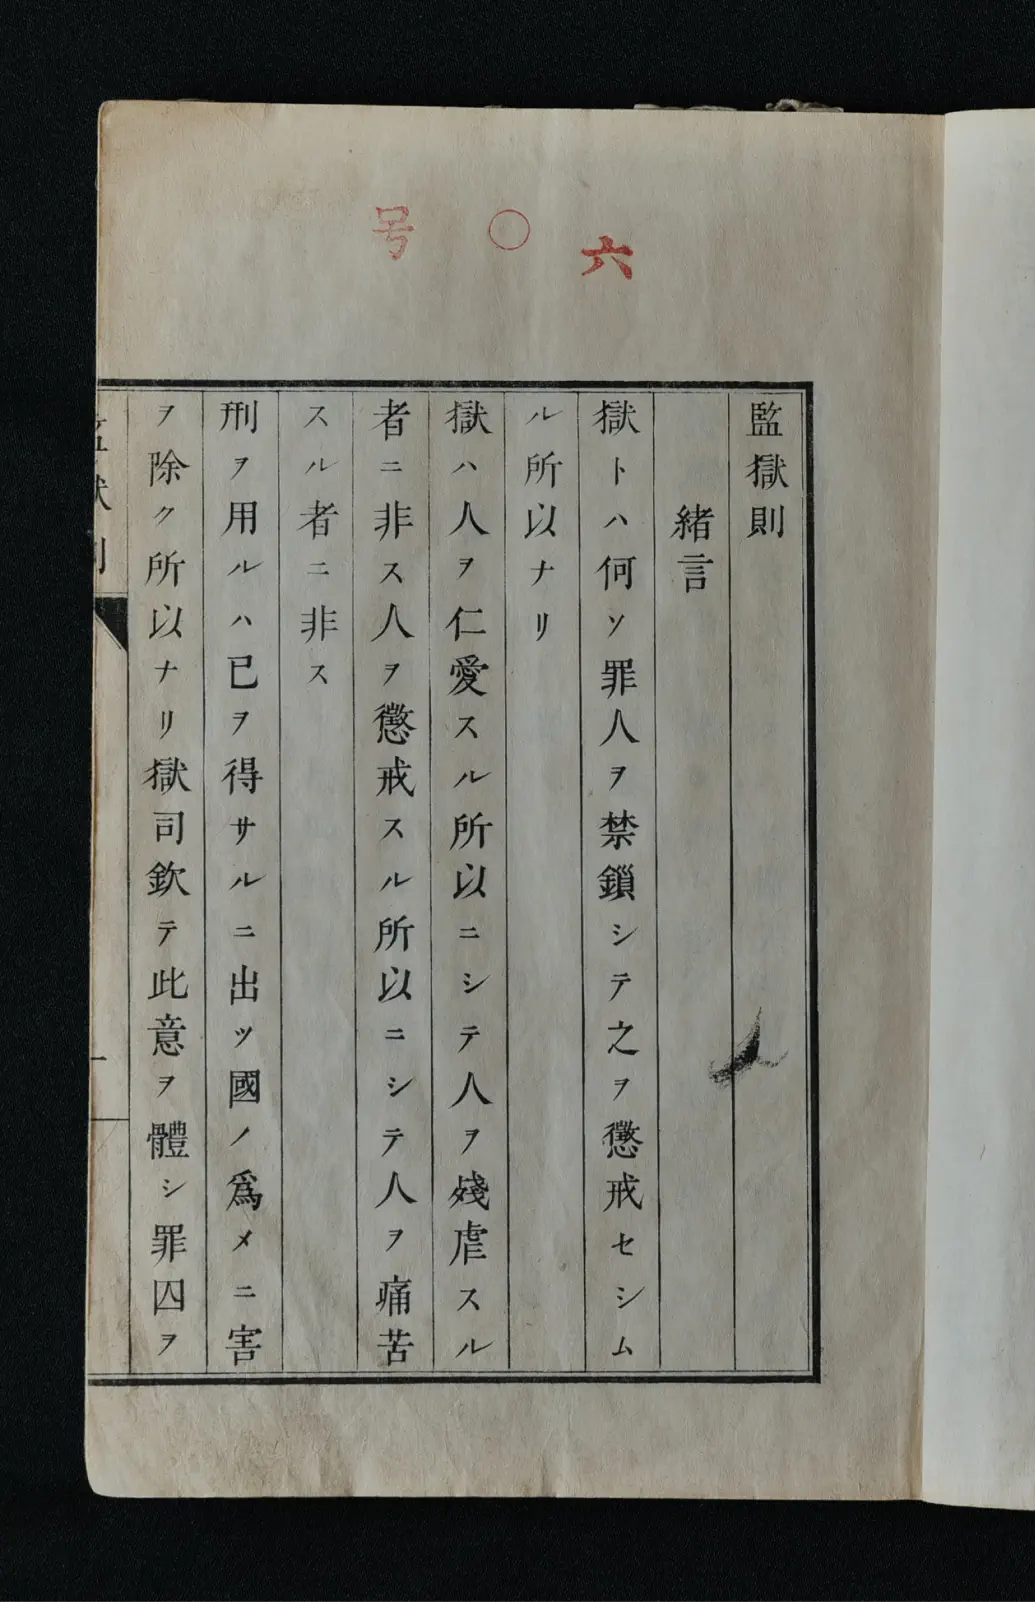 六〇号
監獄則
緒言
獄トハ何ソ罪人ヲ禁鎖シテ之ヲ懲戒セシム
ル所以ナリ
獄ハ人ヲ仁愛スル所以ニシテ人ヲ殘虐スル
者ニ非ス人ヲ懲戒スル所以ニシテ人ヲ痛苦
スル者ニ非ス
刑ヲ用ルハ已ヲ得サルニ出ツ國ノ爲メニ害
ヲ除ク所以ナリ獄司欽テ此意ヲ體シ罪囚ヲ
監獄則
一